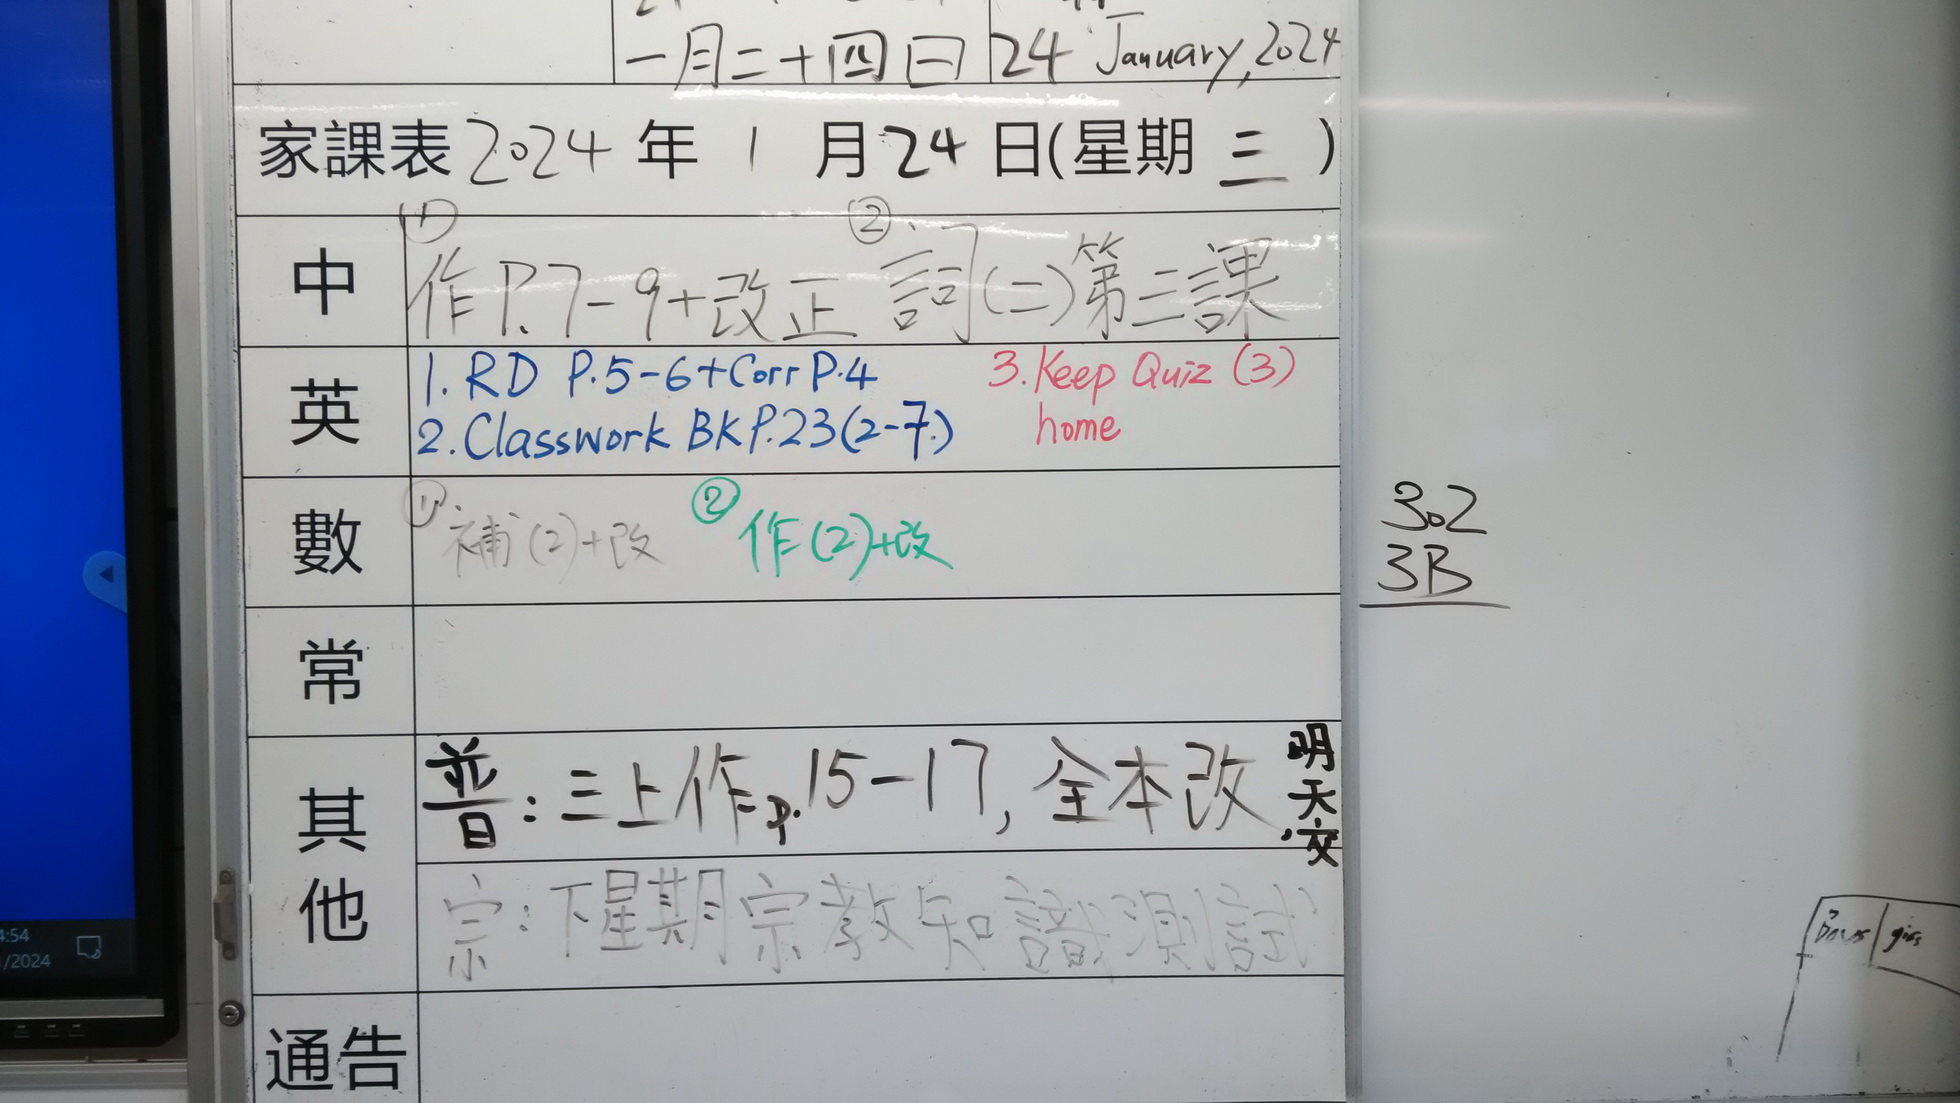 一月二十四日 24 January, 2024
家課表 2024 年 1 月 24 日(星期 三 )
中 ① 作P.7-9+改正 ② 詞(二)第三課
英 1. RD P.5-6+Corr P.4
2. Classwork BK P.23(2-7)
3. Keep Quiz (3)
home
數 ① 補(2)+改 ② 作(2)+改
常
其他 普:三上作p.15-17, 全本改 明天交
宗:下星期宗教知識測試
通告
302
3B
4:54
/2024
Bows girs